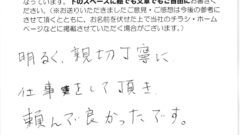 なっています。下のスペースに絵でも文章でもご自由にお書き
ください。（※お送りいただきましたご意見・ご感想は今後の参考に
させて頂くとともに、お名前を伏せた上で当社のチラシ・ホーム
ページなどに掲載させていただく場合がございます。）
明るく、親切丁寧に
仕事をして頂き
頼んで良かったです。